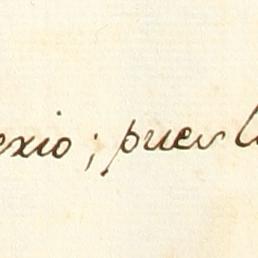 exio; pues l